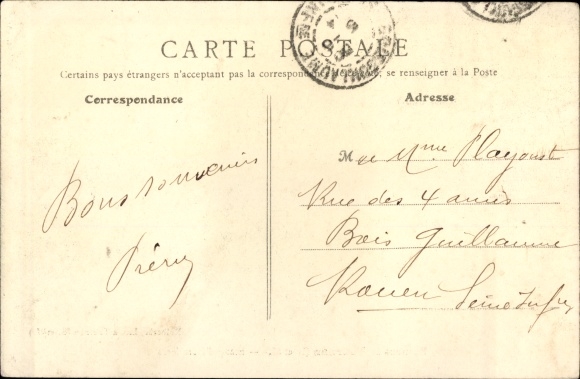 CARTE POSTALE
Certains pays étrangers n'acceptant pas la correspondance se renseigner à la Poste
Correspondance
Adresse
Bons souvenirs
M et Mme Playoust
Rue des 4 amis
Bois Guillaume
Rouen Seine Infre